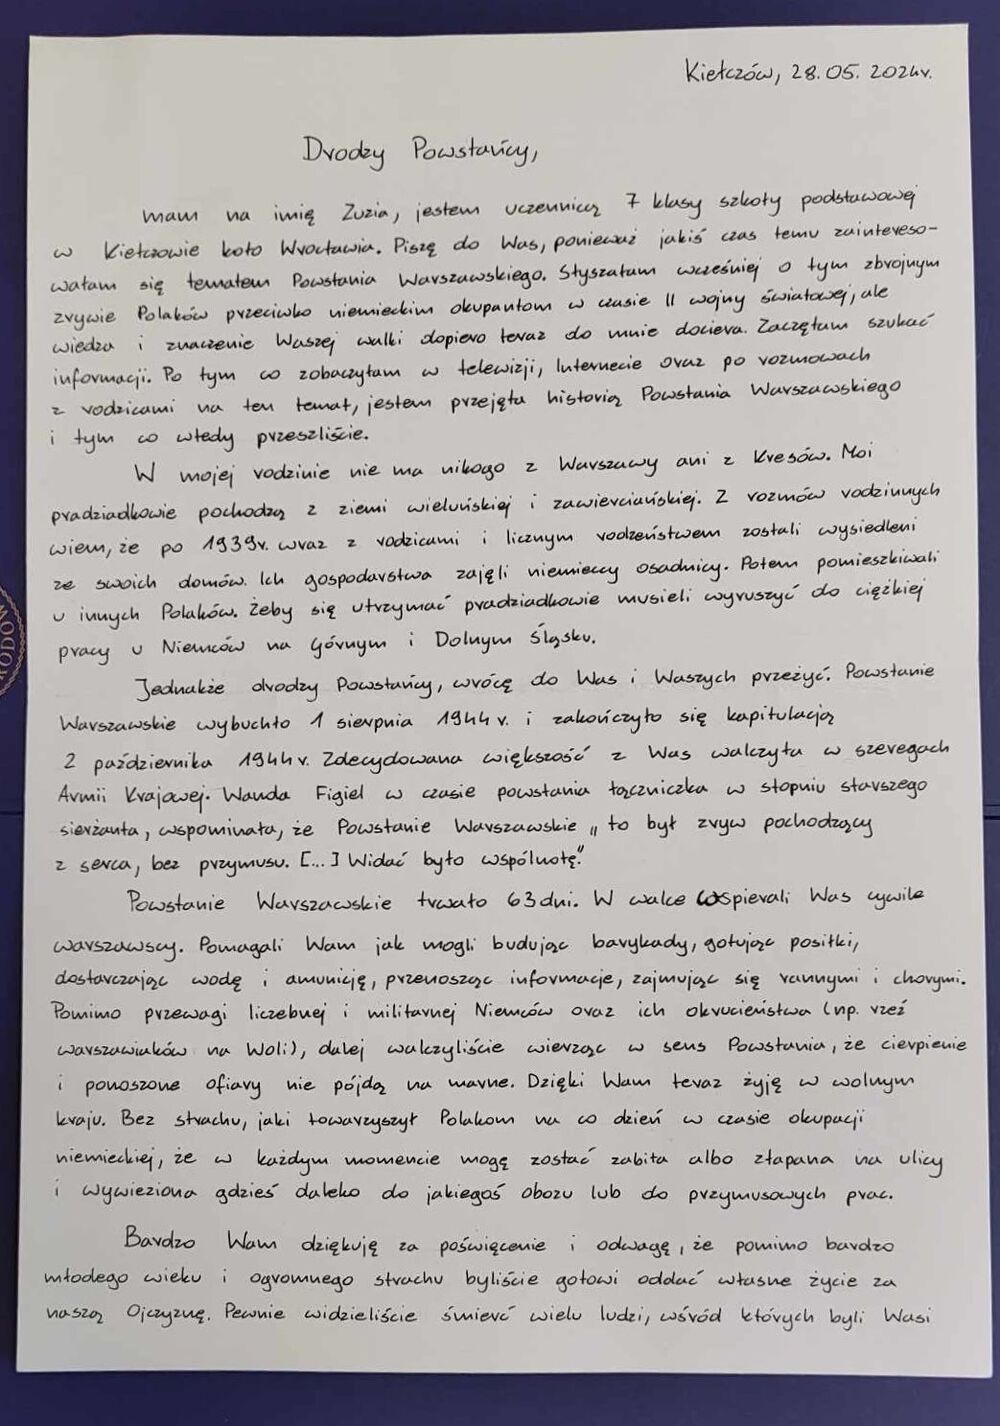 Kiełczów, 28.05.2024r.
Drodzy Powstańcy,
mam na imię Zuzia, jestem uczennicą 7 klasy szkoły podstawowej
w Kiełczowie koło Wrocławia. Piszę do Was, ponieważ jakiś czas temu zaintereso-
wałam się tematem Powstania Warszawskiego. Słyszałam wcześniej o tym zbrojnym
zrywie Polaków przeciwko niemieckim okupantom w czasie II wojny światowej, ale
wiedza i znaczenie Waszej walki dopiero teraz do mnie dociera. Zaczęłam szukać
informacji. Po tym co zobaczyłam w telewizji, Internecie oraz po rozmowach
z rodzicami na ten temat, jestem przejęta historią Powstania Warszawskiego
i tym co wtedy przeszliście.
W mojej rodzinie nie ma nikogo z Warszawy ani z Kresów. Moi
pradziadkowie pochodzą z ziemi wieluńskiej i zawierciańskiej. Z rozmów rodzinnych
wiem, że po 1939r. wraz z rodzicami i licznym rodzeństwem zostali wysiedleni
ze swoich domów. Ich gospodarstwa zajęli niemieccy osadnicy. Potem pomieszkiwali
u innych Polaków. Żeby się utrzymać pradziadkowie musieli wyruszyć do ciężkiej
pracy u Niemców na Górnym i Dolnym Śląsku.
Jednakże drodzy Powstańcy, wrócę do Was i Waszych przeżyć. Powstanie
Warszawskie wybuchło 1 sierpnia 1944r. i zakończyło się kapitulacją
2 października 1944r. Zdecydowana większość z Was walczyła w szeregach
Armii Krajowej. Wanda Figiel w czasie powstania łączniczka w stopniu starszego
sierżanta, wspominała, że Powstanie Warszawskie „to był zryw pochodzący
z serca, bez przymusu. [...] Widać było wspólnotę."
Powstanie Warszawskie trwało 63 dni. W walce wspierali Was cywile
warszawscy. Pomagali Wam jak mogli budując barykady, gotując posiłki,
dostarczając wodę i amunicję, przenosząc informacje, zajmując się rannymi i chorymi.
Pomimo przewagi liczebnej i militarnej Niemców oraz ich okrucieństwa (np. rzeź
warszawiaków na Woli), dalej walczyliście wierząc w sens Powstania, że cierpienie
i ponoszone ofiary nie pójdą na marne. Dzięki Wam teraz żyję w wolnym
kraju. Bez strachu, jaki towarzyszył Polakom na co dzień w czasie okupacji
niemieckiej, że w każdym momencie mogę zostać zabita albo złapana na ulicy
i wywieziona gdzieś daleko do jakiegoś obozu lub do przymusowych prac.
Bardzo Wam dziękuję za poświęcenie i odwagę, że pomimo bardzo
młodego wieku i ogromnego strachu byliście gotowi oddać własne życie za
naszą Ojczyznę. Pewnie widzieliście śmierć wielu ludzi, wśród których byli Wasi